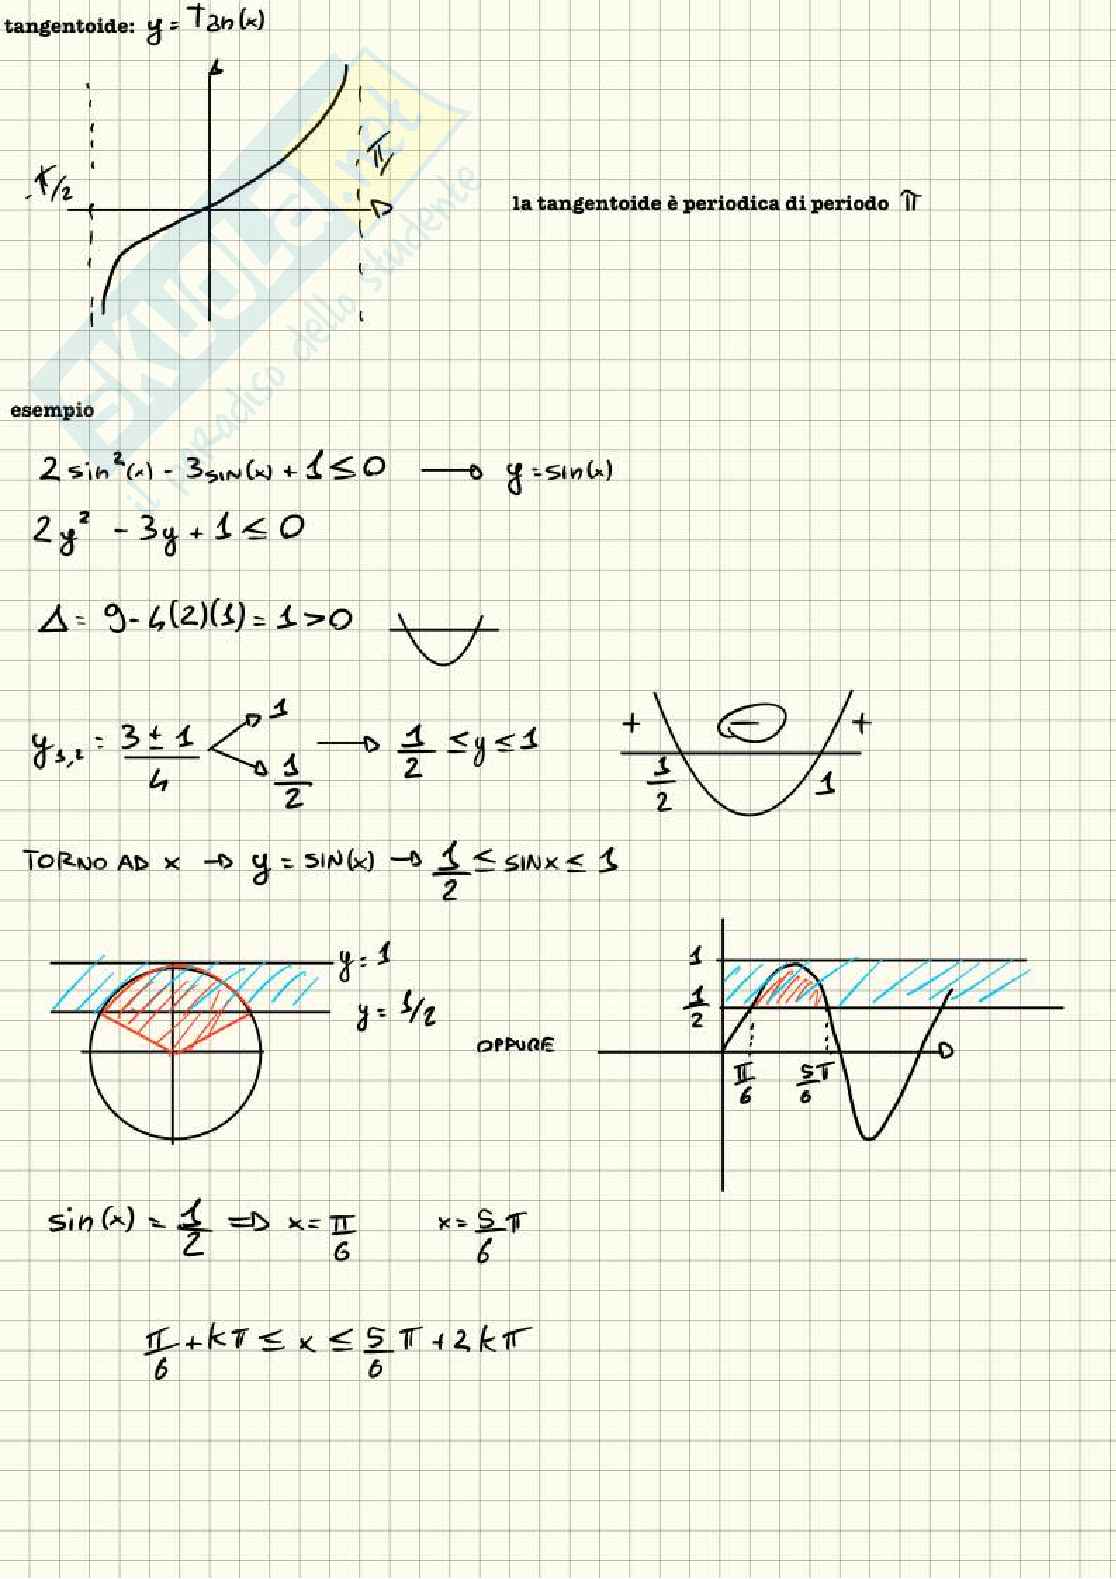 tangentoide: y = Tan(x)
-π/2
π
la tangentoide è periodica di periodo π
SKUOLA.net
il paradiso dello studente
esempio
2 sin²(x) - 3 SIN(x) + 1 ≤ 0 → y = sin(x)
2y² - 3y + 1 ≤ 0
Δ = 9 - 4(2)(1) = 1 > 0
y1,2 = (3 ± 1)/4 1 1/2 → 1/2 ≤ y ≤ 1
+ - +
1/2 1
TORNO AD X → y = SIN(x) → 1/2 ≤ SINX ≤ 1
y = 1
y = 1/2
OPPURE
1
1/2
π/6 5π/6
sin(x) = 1/2 ⇒ x = π/6 x = 5/6 π
π/6 + kπ ≤ x ≤ 5/6 π + 2kπ